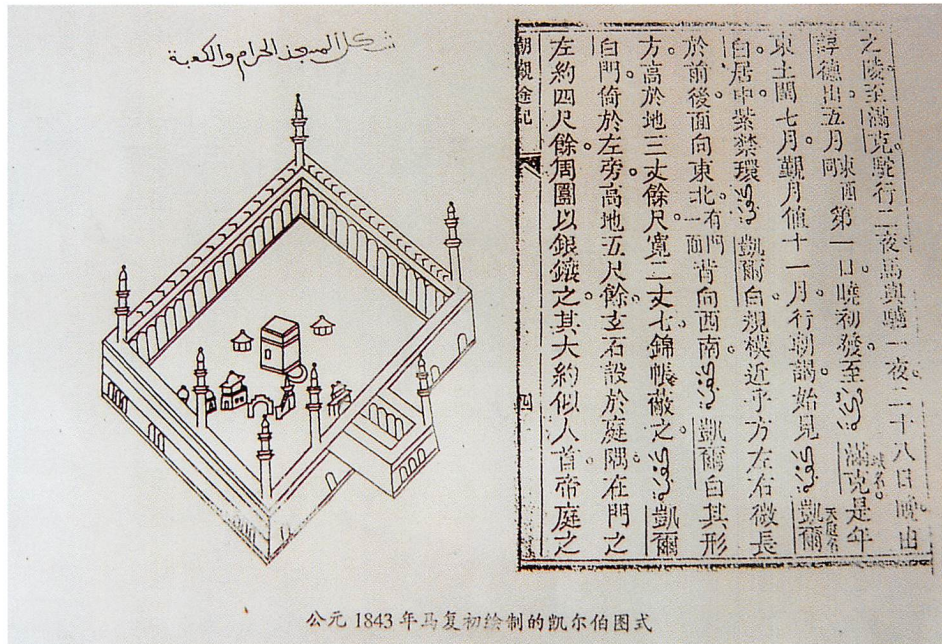 شكل المسجد الحرام والكعبة
之陵至滿克。駝行二夜馬與一夜。二十八日曉由
諄德出五月東西同第一日曉初發。至滿克城名。是年
東土閏七月。觀月值十一月。行朝謁。始見凱爾天庭名
白。居中紫禁環。凱爾白規模近乎方左右微長
於前後。面向東北。有門一面背向西南。凱爾白其形
方。高於地三丈餘尺。寬二丈七。錦帳蔽之。凱爾
白門。倚於左旁。高地五尺餘。玄石設於庭隅。在門之
左約四尺餘。周圍以銀鑲之。其大約似人首。帝庭之
朝覲途記
四
公元 1843 年马复初绘制的凯尔伯图式